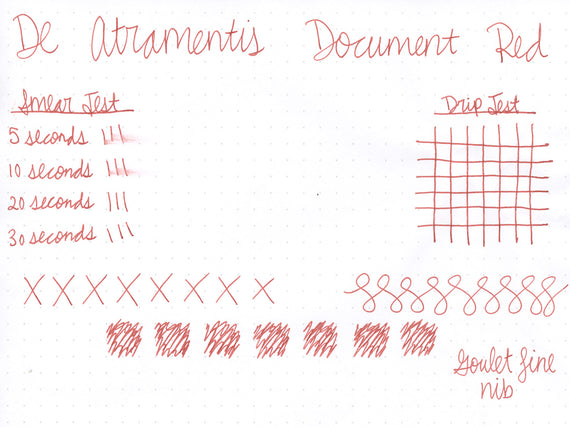 De Atramentis Document Red
Smear Test
Drip Test
5 seconds
10 seconds
20 seconds
30 seconds
X X X X X X X X
Goulet fine
nib